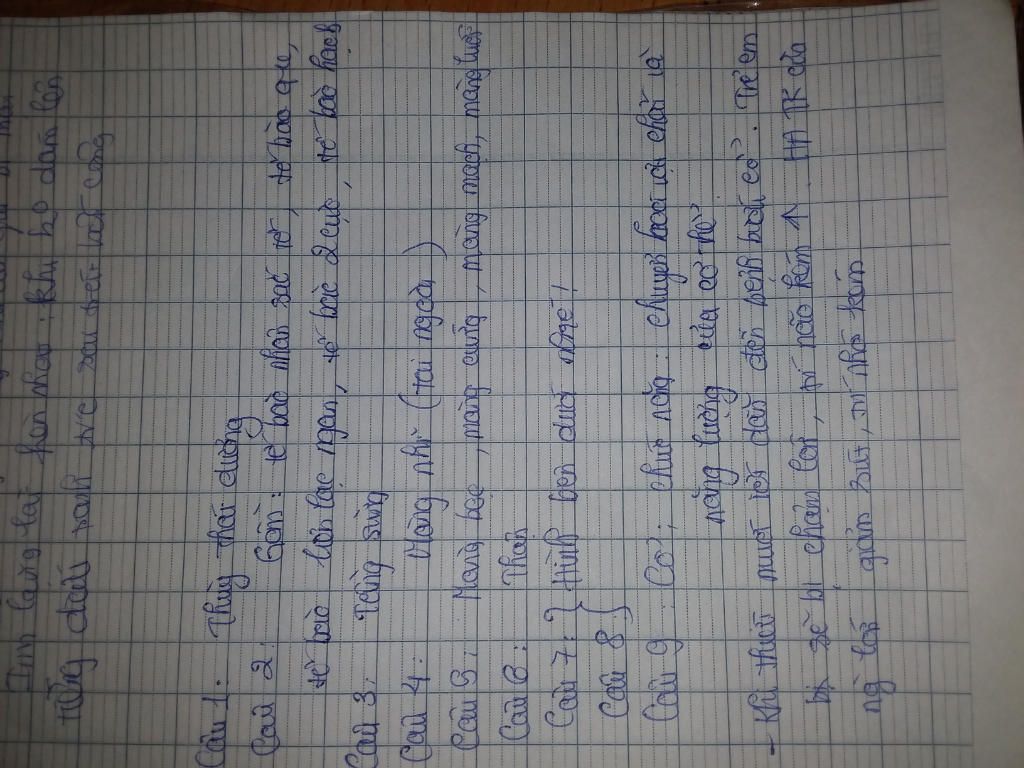 Âm lặng lại phân nhau: khi bao dân lên
tiếng đất xanh tức sau biết hoà cùng
Câu 1: Thùy thái dương
Câu 2: Gồm: tế bào nhân sắc tố, tế bào que,
tế bào liên lạc ngan, tế bào 2 cực, tế bào hạch
Câu 3: Tầng sừng
Câu 4: Màng nhĩ (tai ngoài)
Câu 5: Màng bọc, màng cứng, màng mạch, màng lưới
Câu 6: Thận
Câu 7: } Hình bên dưới nhoé!
Câu 8: }
Câu 9: Có, chức năng: chuyển hoá vật chất và
năng lượng của cơ thể
- Khi thiếu muối iốt dẫn đến bệnh bướu cổ. Trẻ em
bị sẽ bị chậm lớn, trí não kém ↑ HĐ TK của
ng lớn giảm sút, trí nhớ kém